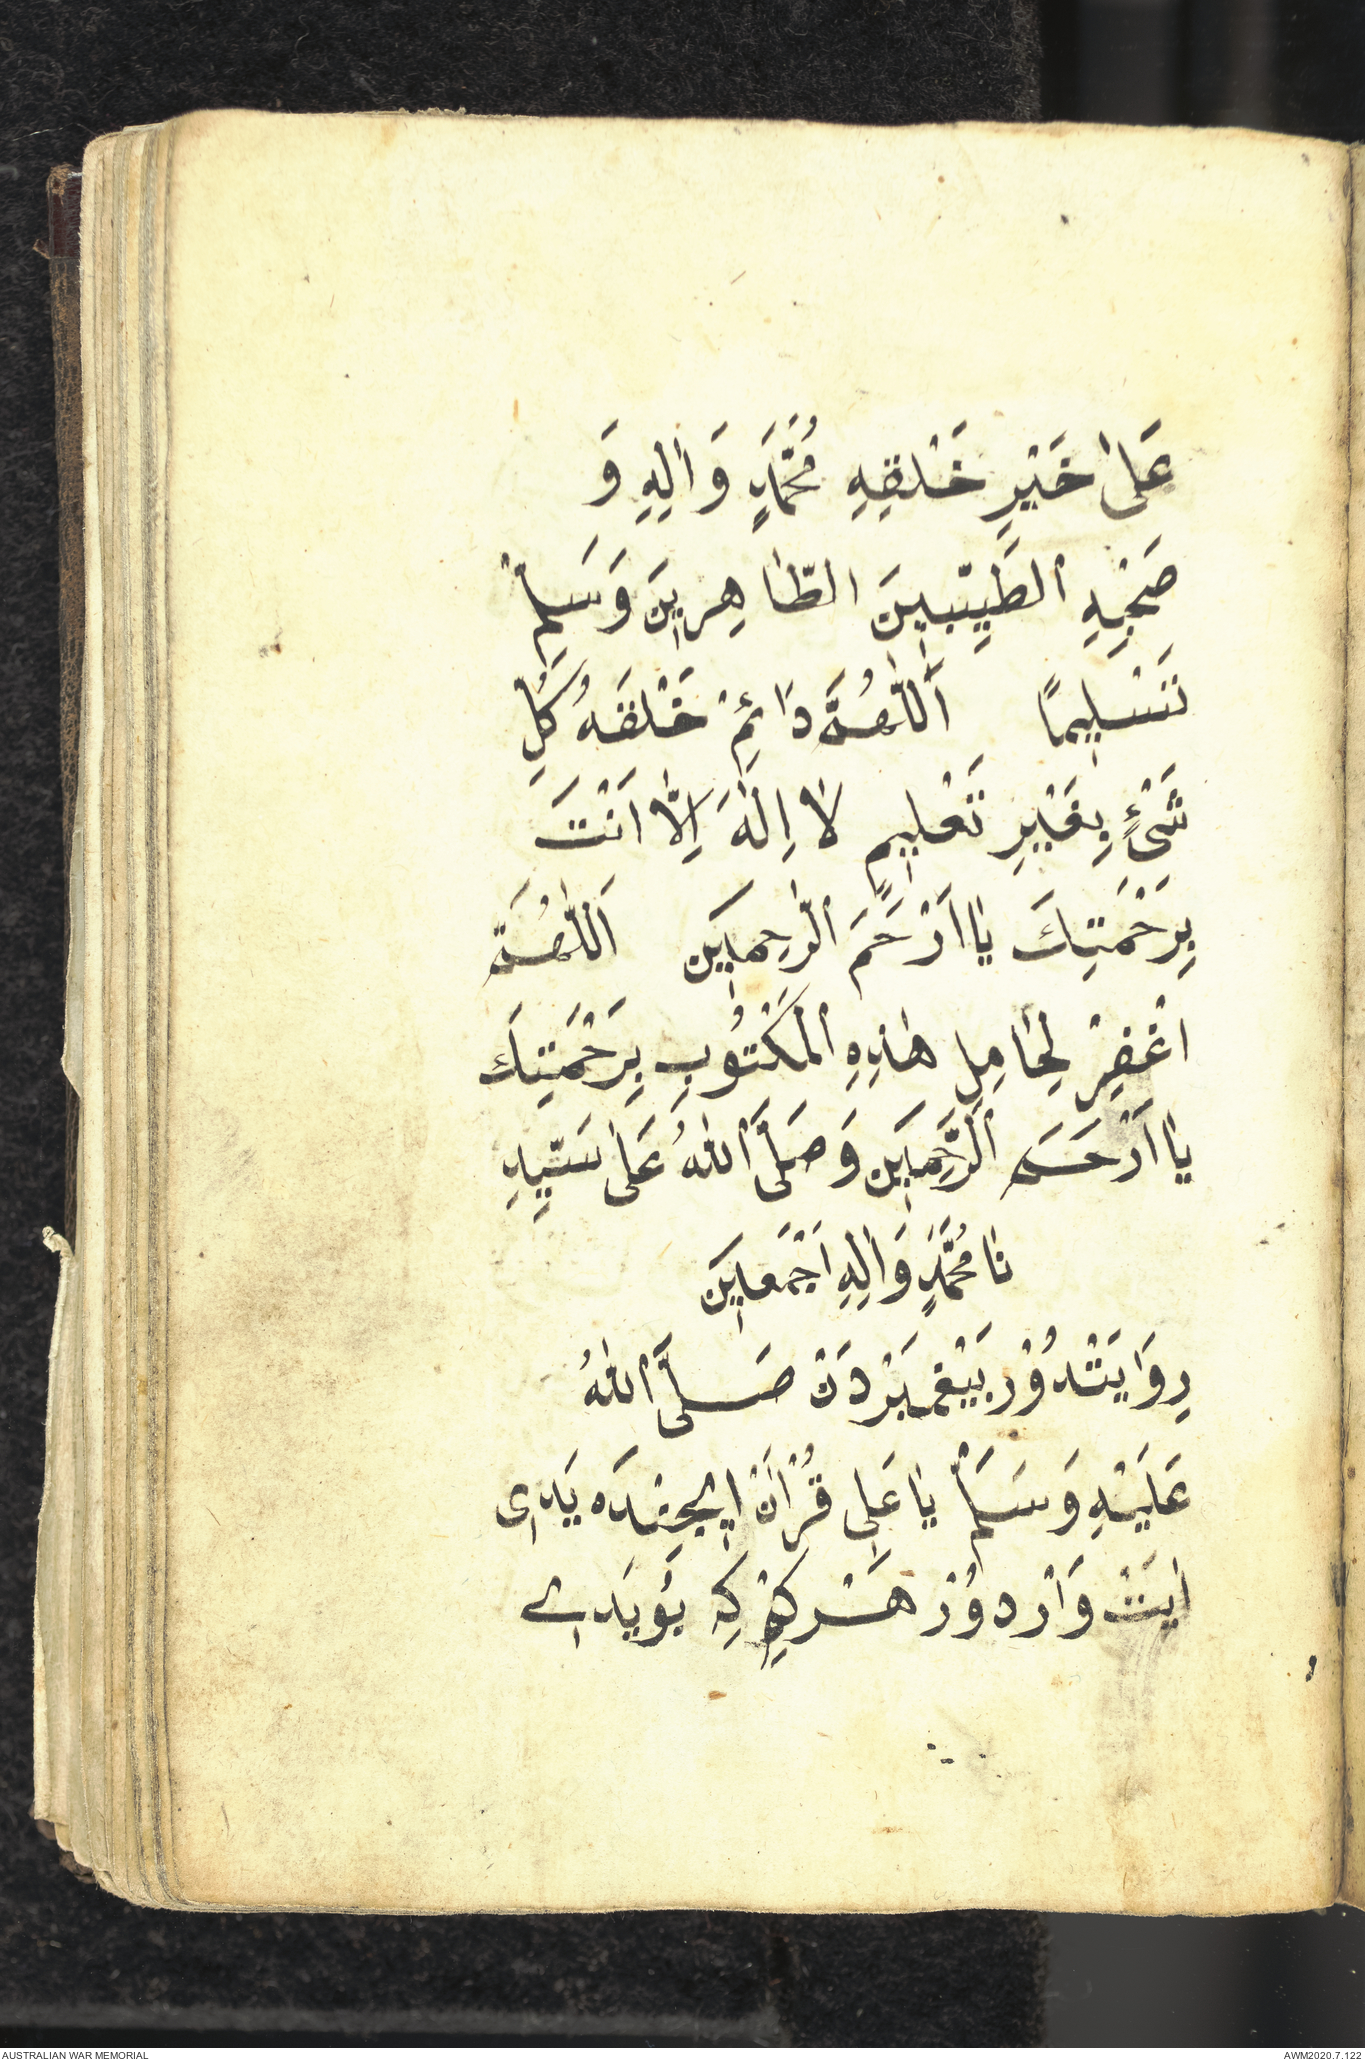 عَلٰى خَيْرِ خَلْقِهِ مُحَمَّدٍ وَاٰلِهِ وَ
صَحْبِهِ الطَيِّبِينَ الطَّاهِرِينَ وَسَلِّمْ
تَسْلِيمًا اَللّٰهُمَّ دَائِمْ خَلْقَهُ كُلِ
شَىْءٍ بِغَيْرِ تَعْلِيمٍ لَا اِلٰهَ اِلَّا اَنْتَ
بِرَحْمَتِكَ يَا اَرْحَمَ الرّٰحِمِينَ اَللّٰهُمَّ
اغْفِرْ لِحَامِلِ هٰذِهِ الْمَكْتُوبِ بِرَحْمَتِكَ
يَا اَرْحَمَ الرَّحِمِينَ وَصَلَّى اللّٰهُ عَلٰى سَيِّدِ
نَا مُحَمَّدٍ وَاٰلِهِ اَجْمَعِينَ
رِوَايَتْدُوْر بَيْغَمْبَرْدَنْ صَلَّى اللّٰهُ
عَلَيْهِ وَسَلَّمْ يَا عَلِى قُرْاٰنْ اِيچِنْدَه يَدِى
اٰيَتْ وَارْدُوْر هَرْ كِمْ كِه بُو يَدِى
AUSTRALIAN WAR MEMORIAL
AWM2020.7.122